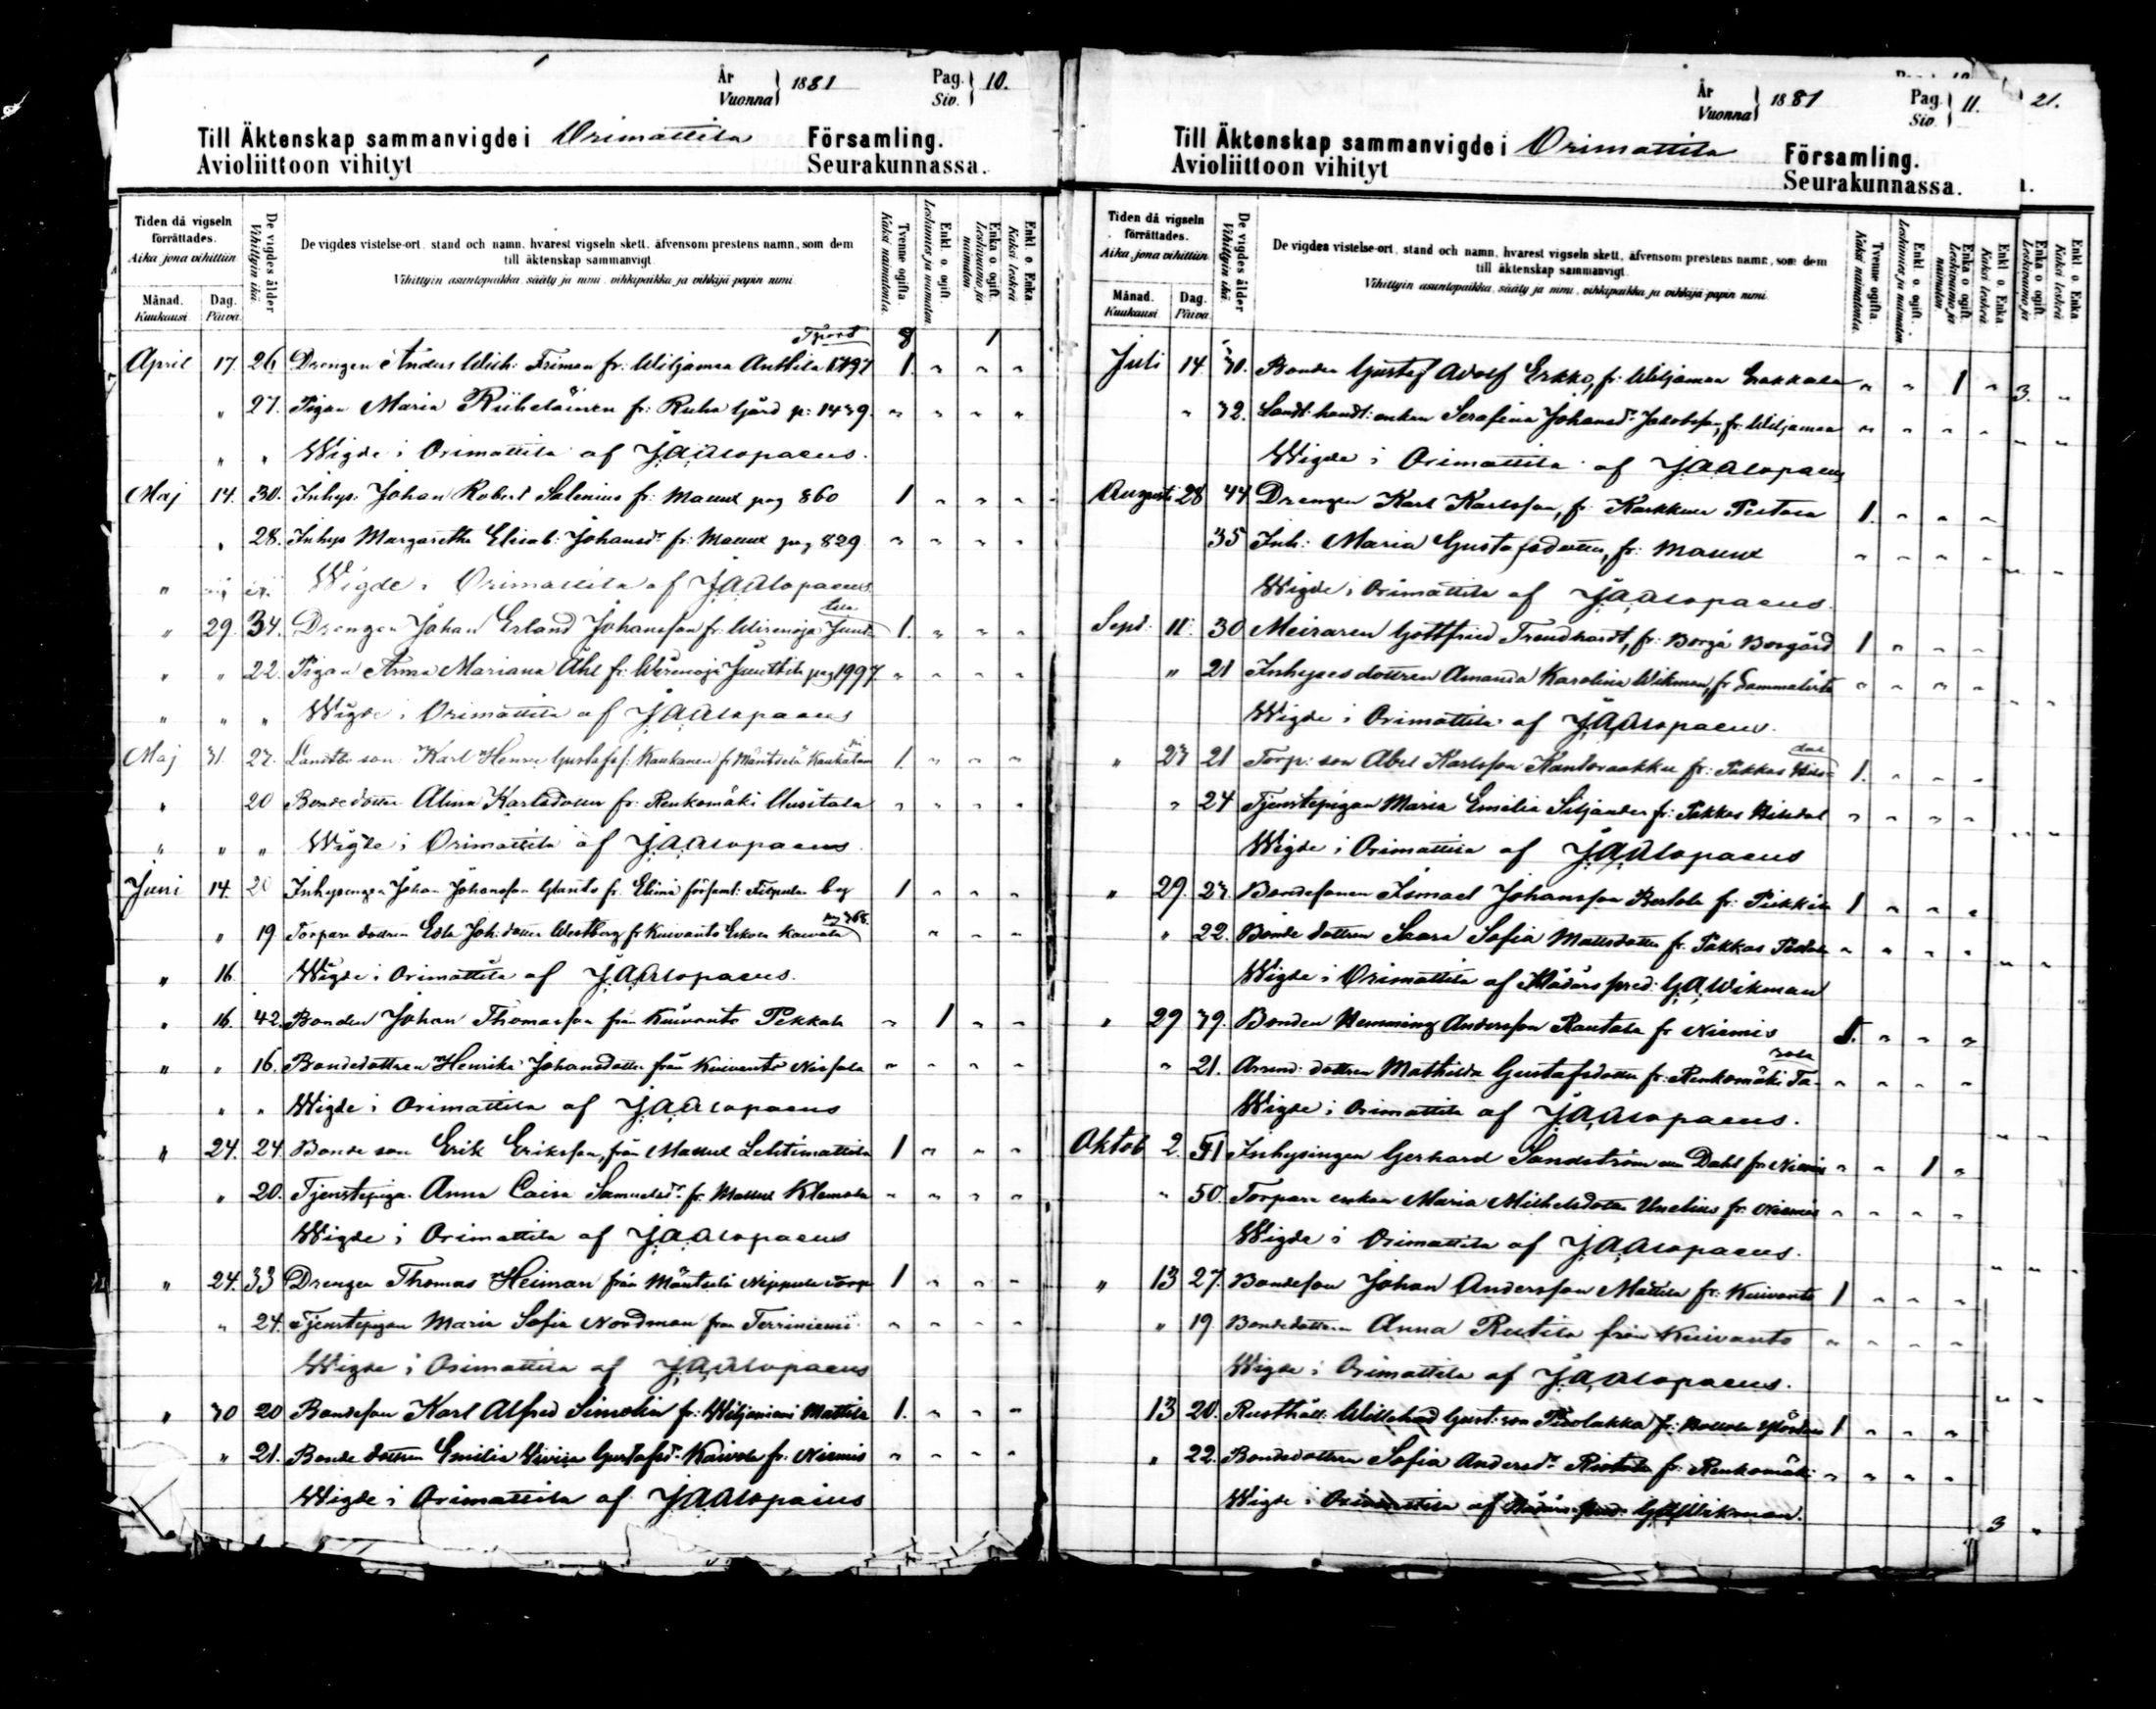 År 1881 Pag. 10.
Vuonna Siv.
Till Äktenskap sammanvigde i Orimattila Församling.
Avioliittoon vihityt Seurakunnassa.
Tiden då vigseln förrättades. De vigdes ålder De vigdes vistelse-ort, stand och namn, hvarest vigseln skett, äfvensom prestens namn, som dem till äktenskap sammanvigt. Tvenne ogifta. Enkl. o. ogift. Enka o. ogift. Enkl. o. Enka.
Aika jona vihittiin Vihittyin ikä. Vihittyin asuntopaikka, sääty ja nimi, vihkipaikka ja vihkijä-papin nimi. Kaksi naimatonta. Leskimies ja naimaton. Leskivaimo ja naimaton. Kaksi leskeä.
Månad. Dag.
Kuukausi. Päivä.
Tsport 8 1
April 17. 26 Drengen Anders Wilh: Friman fr: Wiljamaa Anttila 1797 1. " " "
" 27. Pigan Maria Riiheläinen fr: Ruha Gård p: 1439. " " " "
" " Wigde i Orimattila af J.A.Alopaeus.
Maj 14. 30. Inhys: Johan Robert Salenius fr: Mallut pag 860 1 " " "
" 28. Inhys Margaretha Elisab: Johansdr fr: Mallut pag 829 " " " "
" Wigde i Orimattila af J.A.Alopaeus
" 29. 34. Drengen Johan Erland Johansson fr: Wirenoja Juut-tila 1. " " "
" " 22. Pigan Anna Mariana Åhl fr: Wirenoja Juuttila pag 1997 " " " "
" " " Wigde i Orimattila af J.A.Alopaeus
Maj 31. 27. Landtb: son Karl Henric Gustafss: Kaukanen fr Mäntsälä 1. " " "
" 20 Bonde dotter Alina Karlsdotter fr: Renkomäki Uusitalo " " " "
" " " Wigde i Orimattila af J.A.Alopaeus
Juni 14. 20 Inhysingen Johan Johansson Glants fr. Elimä församl: 1 " " "
" 19 Torpare dottren Edla Joh: dotter Westberg fr Kuivanto Eskola " " "
" 16. Wigde i Orimattila af J.A.Alopaeus.
" 16. 42. Bonden Johan Thomasson från Kuivanto Pekkala " 1 " "
" " 16. Bondedottren Henrika Johansdotter från Kuivanto Nissola " " " "
" " Wigde i Orimattila af J.A.Alopaeus
" 24. 24. Bonde son Erik Eriksson, från Mallut Lehtimattila 1 " " "
" 20. Tjenstepiga Anna Caisa Samuelsdr fr. Mallut Klemola " " " "
Wigde i Orimattila af J.A.Alopaeus
" 24. 33 Drengen Thomas Heiman från Mäntsälä Nippula torp 1 " " "
" 24. Tjenstepigan Maria Sofia Nordman från Terriniemi " " " "
Wigde i Orimattila af J.A.Alopaeus
" 30 20 Bondeson Karl Alfred Simolin fr: Wiljaniemi Mattila 1. " " "
" 21. Bonde dottren Emilia Gustafsdr Kaivola fr. Niemis " " " "
Wigde i Orimattila af J.A.Alopaeus
År 1881 Pag. 11. 21.
Vuonna Siv.
Till Äktenskap sammanvigde i Orimattila Församling.
Avioliittoon vihityt Seurakunnassa.
Tiden då vigseln förrättades. De vigdes ålder De vigdes vistelse-ort, stand och namn, hvarest vigseln skett, äfvensom prestens namn, som dem till äktenskap sammanvigt. Tvenne ogifta. Enkl. o. ogift. Enka o. ogift. Enkl. o. Enka.
Aika jona vihittiin Vihittyin ikä. Vihittyin asuntopaikka, sääty ja nimi, vihkipaikka ja vihkijä-papin nimi. Kaksi naimatonta. Leskimies ja naimaton. Leskivaimo ja naimaton. Kaksi leskeä.
Månad. Dag.
Kuukausi Päivä.
Juli 14. 30. Bonden Gustaf Adolf Erkko, fr: Wiljamaa " " 1 " 3.
" 32. Landt: handl: enkan Serafina Johansdr Jakobsson, fr. Wiljamaa " " " "
Wigde i Orimattila af J.A.Alopaeus
Augusti 28 44 Drengen Karl Karlsson, fr. Karkkula Pertola 1. " " "
35 Inh: Maria Gustafsdotter, fr: Mallut " " " "
Wigde i Orimattila af J.A.Alopaeus.
Sept. 11. 30 Meiraren Gottfried Trendhardt, fr: Borgå Borgård 1 " " "
" 21 Inhyses dottren Amanda Karolina Wikman, fr Sammalisto " " " "
Wigde i Orimattila af J.A.Alopaeus.
" 23 21 Torp: son Abel Karlsson Kantovaakku fr: Pakkas Hils-dal 1. " " "
" 24 Tjenstepigan Maria Emilia Siljander fr: Pakkas Hilsdal " " " "
Wigde i Orimattila af J.A.Alopaeus
" 29. 23. Bondesonen Ismael Johansson Bertola fr: Pirkkala 1 " " "
" 22. Bonde dottren Saara Sofia Mattsdotter fr. Pakkas " " " "
Wigde i Orimattila af Nådårs pred: G.A.Wikman
" 29 39. Bonden Hemming Andersson Rautala fr Niemis 1. " " "
" 21. Arrend: dottren Mathilda Gustafsdotter fr: Renkomäki Ta- " " " "
Wigde i Orimattila af J.A.Alopaeus.
Oktob 2. 51 Inhysingen Gerhard Sandström Dahl fr Niemis " " 1 "
" 50. Torpare enkan Maria Michelsdotter Unelius fr. Niemis " " " "
Wigde i Orimattila af J.A.Alopaeus.
" 13 27. Bondeson Johan Andersson Mattila fr: Kuivanto 1 " " "
" 19 Bondedottren Anna Reetila från Kuivanto " " " "
Wigde i Orimattila af J.A.Alopaeus.
13 20. Rusthåll: Willehad Gust: son fr: Hollola 1 " " "
" 22. Bondedottren Sofia Andersdr Ristola fr. Renkomäki " " " "
Wigde i Orimattila af Nådårs pred: G.A.Wikman.
3 "